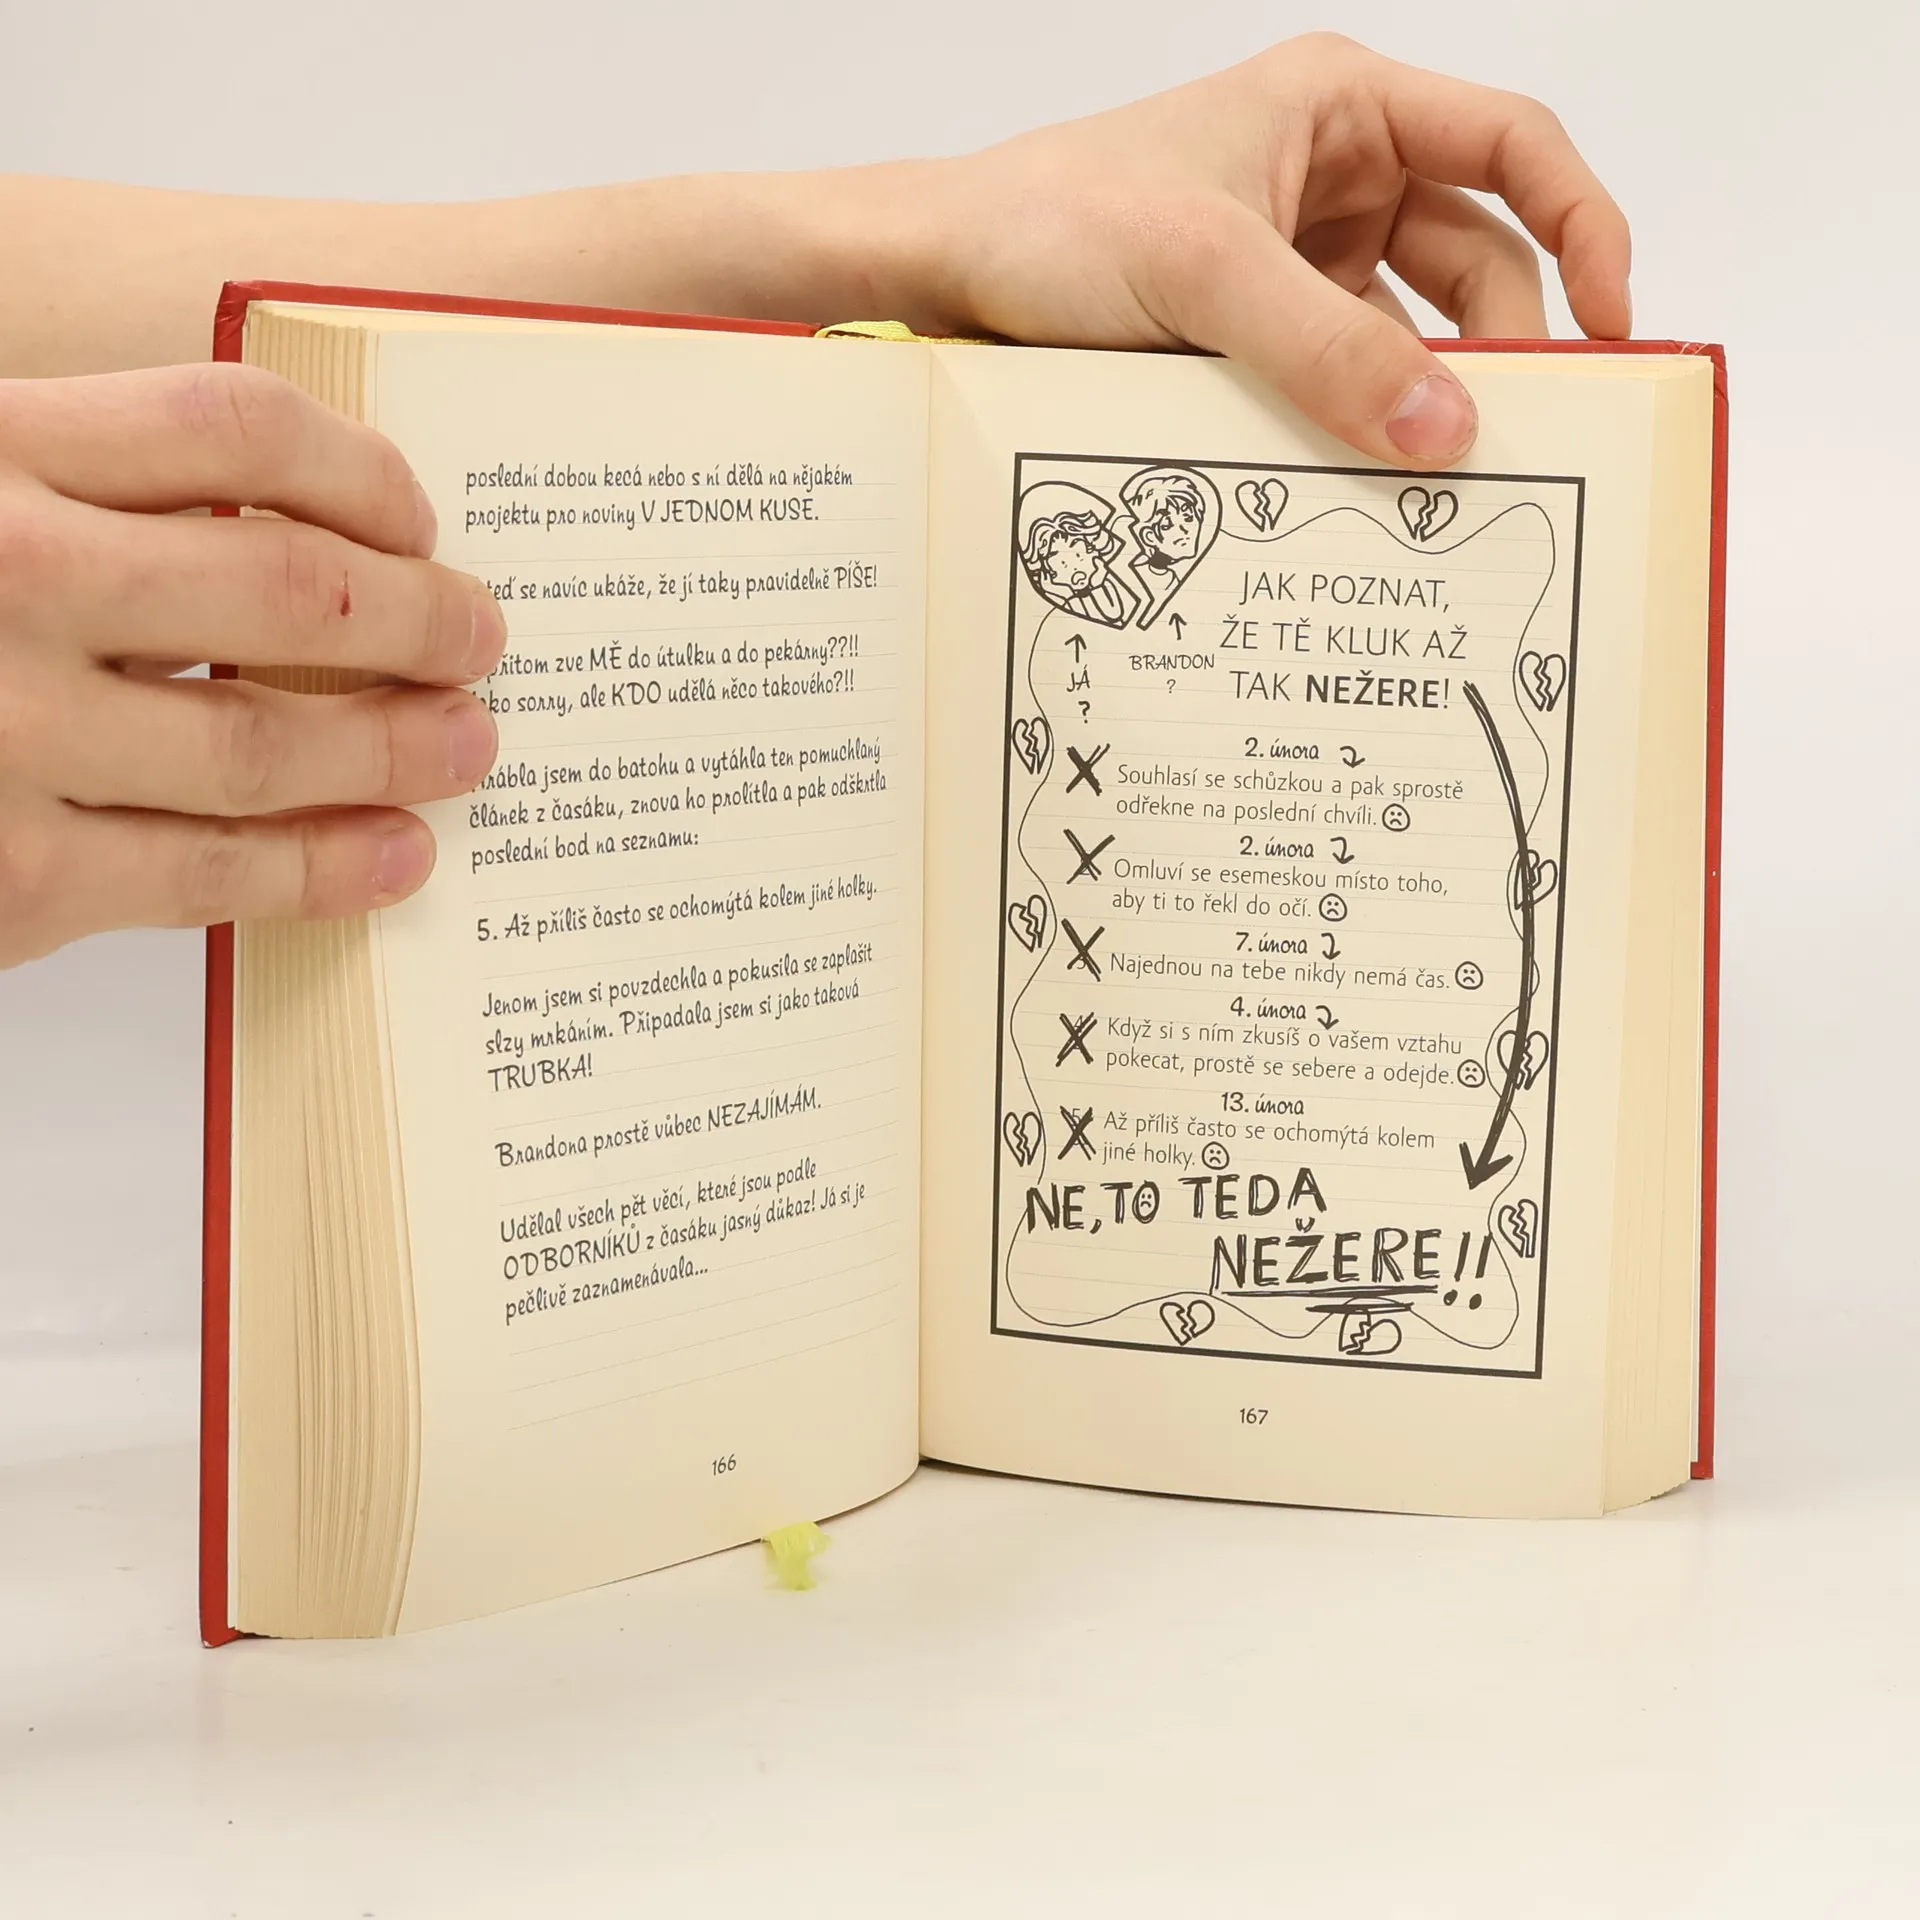 poslední dobou kecá nebo s ní dělá na nějakém
projektu pro noviny V JEDNOM KUSE.
se navíc ukáže, že jí taky pravidelně PÍŠE!
zve MĚ do útulku a do pekárny??!!
sorry, ale KDO udělá něco takového?!!
jsem do batohu a vytáhla ten pomuchlaný
článek z časáku, znova ho prolítla a pak odškrtla
poslední bod na seznamu:
5. Až příliš často se ochomýtá kolem jiné holky.
Jenom jsem si povzdechla a pokusila se zaplašit
slzy mrkáním. Připadala jsem si jako taková
TRUBKA!
Brandona prostě vůbec NEZAJÍMÁM.
Udělal všech pět věcí, které jsou podle
ODBORNÍKŮ z časáku jasný důkaz! Já si je
pečlivě zaznamenávala...
166
JAK POZNAT,
ŽE TĚ KLUK AŽ
TAK NEŽERE!
JÁ
?
BRANDON
?
2. února
Souhlasí se schůzkou a pak sprostě
odřekne na poslední chvíli.
2. února
Omluví se esemeskou místo toho,
aby ti to řekl do očí.
7. února
Najednou na tebe nikdy nemá čas.
4. února
Když si s ním zkusíš o vašem vztahu
pokecat, prostě se sebere a odejde.
13. února
Až příliš často se ochomýtá kolem
jiné holky.
NE, TO TEDA
NEŽERE!!
167